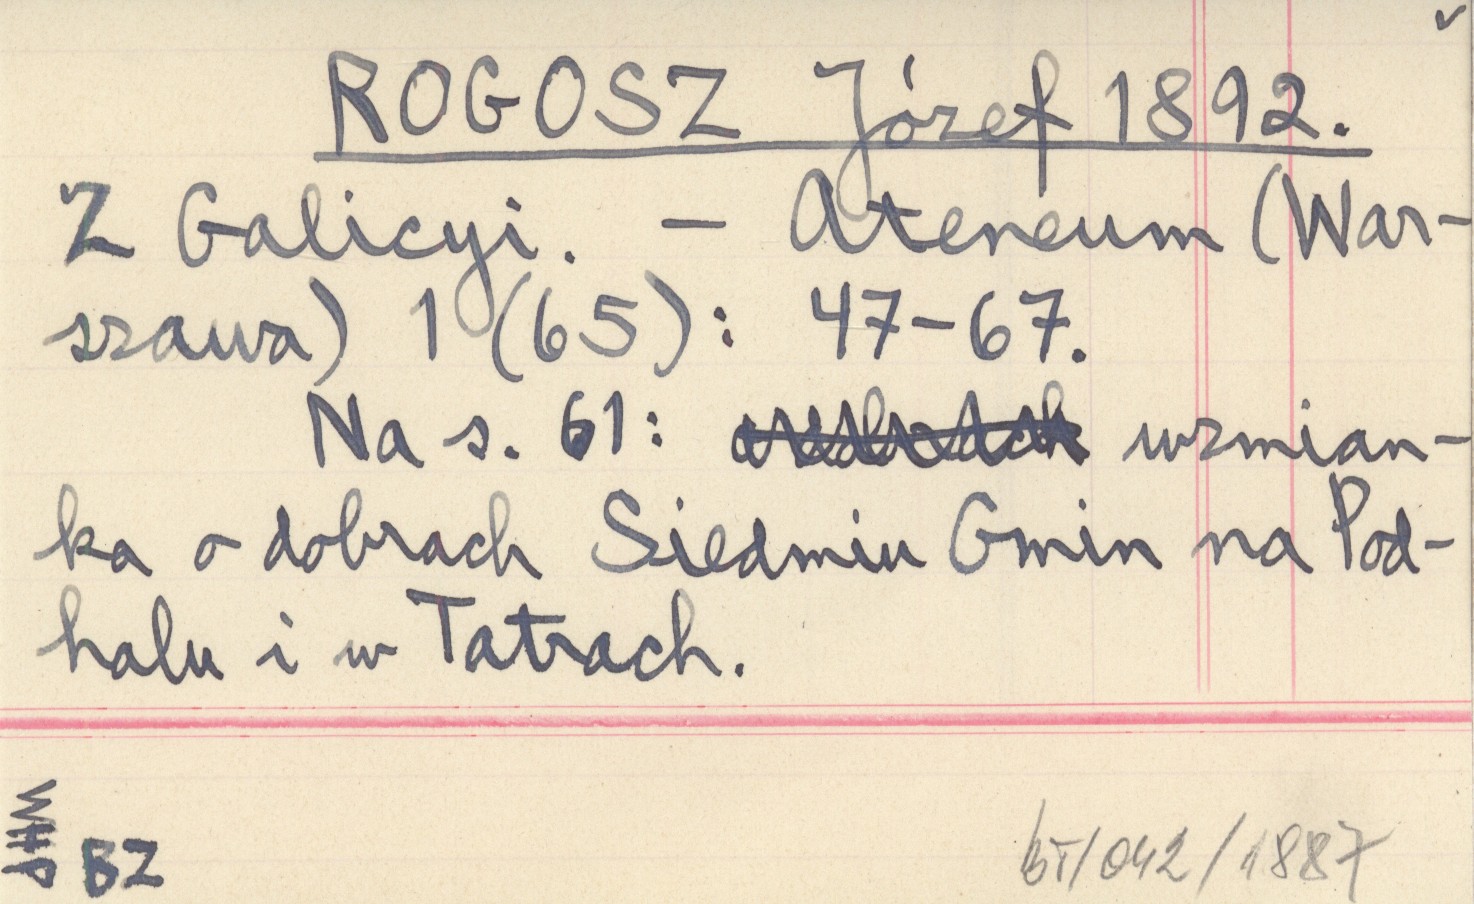 ROGOSZ Józef 1892.
Z Galicyi. – Ateneum (War-
szawa) 1 (65): 47–67.
Na s. 61: wzmian-
ka o dobrach Siedmiu Gmin na Pod-
halu i w Tatrach.
BZ
bT/042/1887